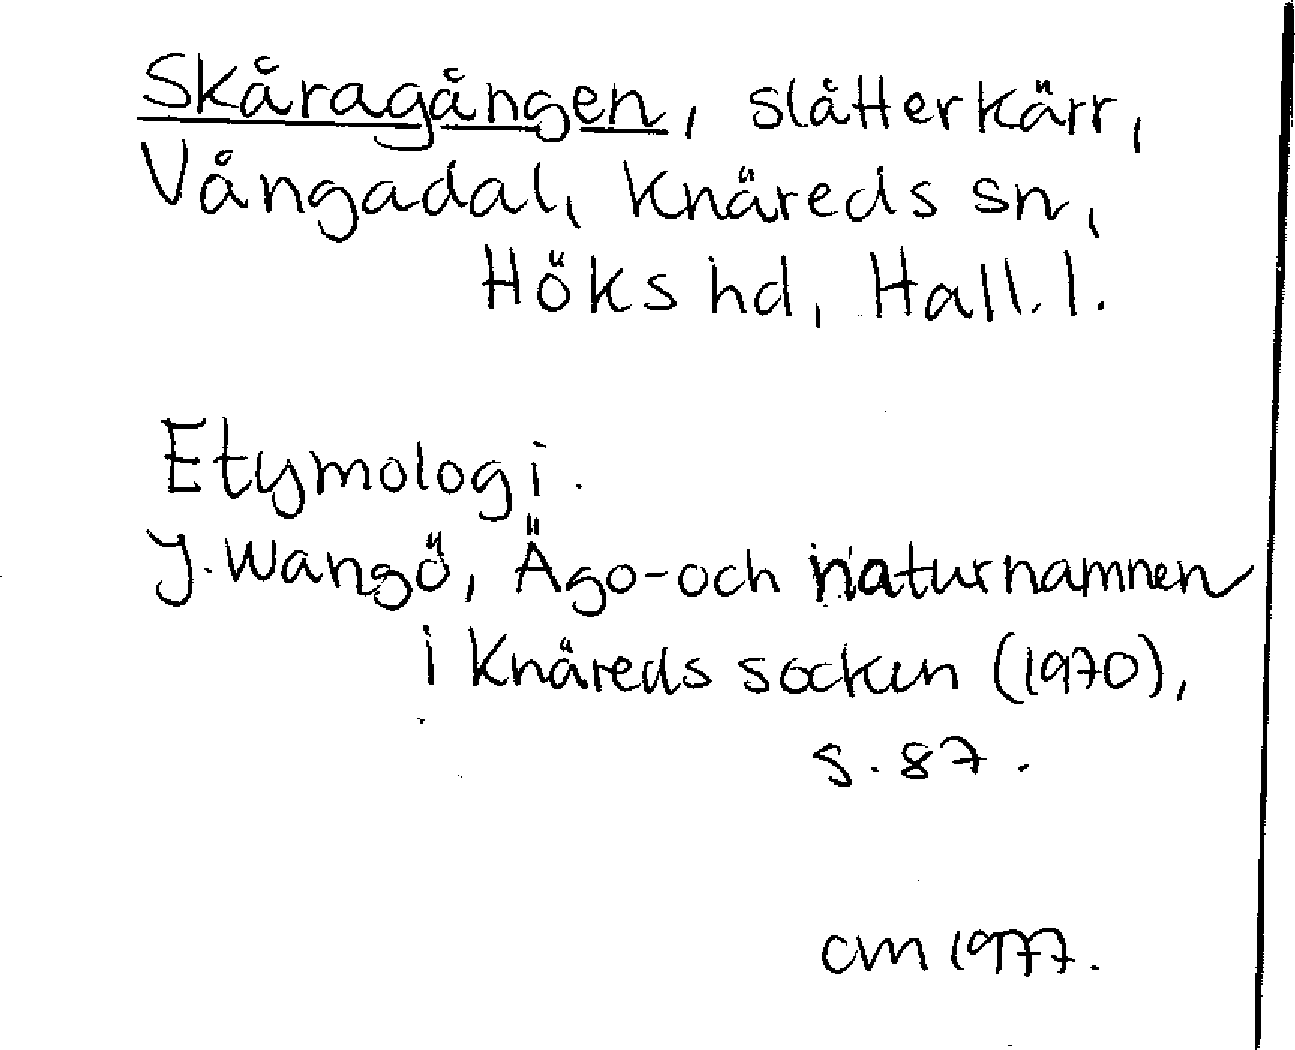 Skåragången, slåtterkärr,
Vångadal, Knäreds sn,
Höks hd, Hall. l.
Etymologi.
J. Wangö, Ägo- och naturnamnen
i Knäreds socken (1970),
s. 87.
CM 1977.